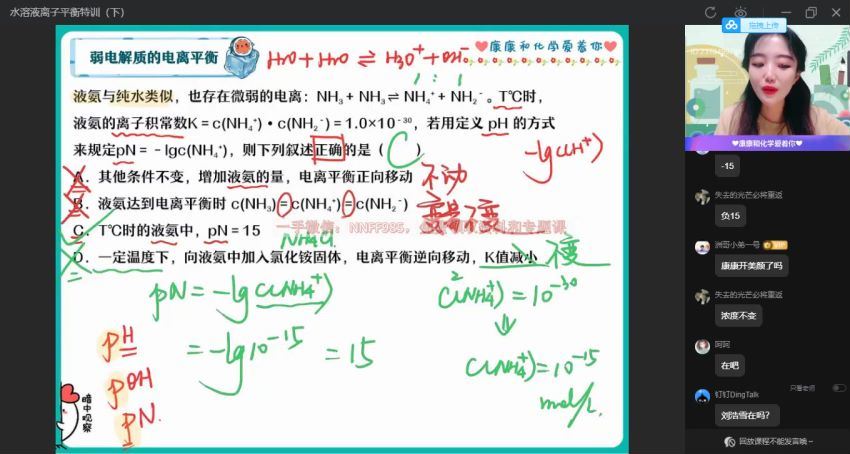 水溶液离子平衡特训（下）
拖拽上传
弱电解质的电离平衡
H₂O + H₂O ⇌ H₃O⁺ + OH⁻
1 : 1
❤康康和化学爱着你❤
液氨与纯水类似，也存在微弱的电离：NH₃ + NH₃ ⇌ NH₄⁺ + NH₂⁻ 。T℃时，
液氨的离子积常数K = c(NH₄⁺)・c(NH₂⁻) = 1.0×10⁻³⁰，若用定义 pH 的方式
来规定pN = －lgc(NH₄⁺)，则下列叙述正确的是（ C ）
-lgc(H⁺)
A．其他条件不变，增加液氨的量，电离平衡正向移动 不动
B．液氨达到电离平衡时 c(NH₃) = c(NH₄⁺) = c(NH₂⁻)
不变
一手微信：NNFF985，
专题课
C．T℃时的液氨中，pN = 15
NH₄Cl
D．一定温度下，向液氨中加入氯化铵固体，电离平衡逆向移动，K值减小 不变
pN = -lg c(NH₄⁺)
= -lg10⁻¹⁵ = 15
c²(NH₄⁺) = 10⁻³⁰
⇓
c(NH₄⁺) = 10⁻¹⁵
mol/L
pH
pOH
pN.
暗中观察
❤康康和化学爱着你❤
-15
失去的光芒必将重返
负15
洲哥小弟一号
康康开美颜了吗
失去的光芒必将重返
浓度不变
阿阿
在吧
只看老师
钉钉DingTalk
刘浩雪在吗？
回放课程不能发言噢～